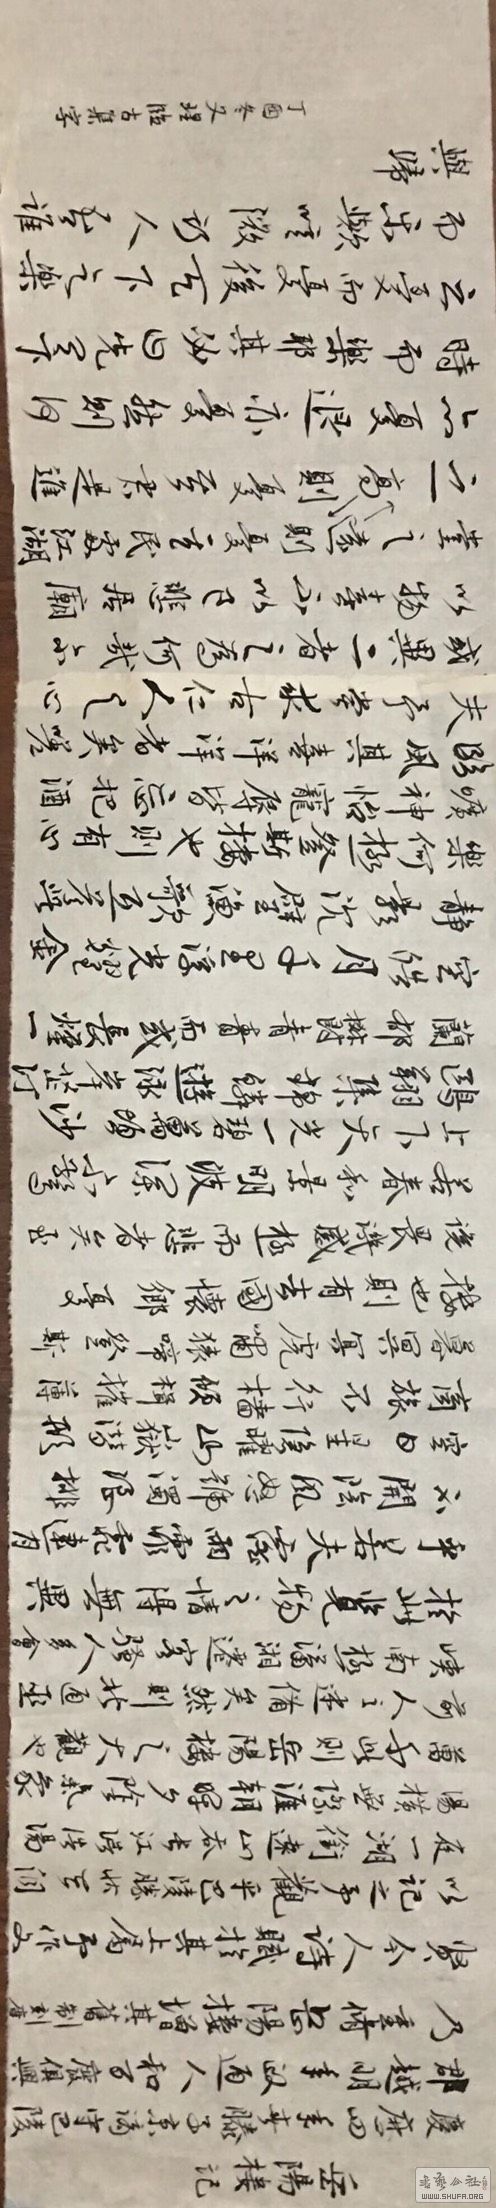 岳陽樓記
慶曆四年春滕子京謫守巴陵
郡越明年政通人和百廢俱興
乃重修岳陽樓增其舊制刻唐
賢今人詩賦於其上屬予作文
以記之予觀乎巴陵勝狀在洞
庭一湖銜遠山吞長江浩浩湯
湯橫無際涯朝暉夕陰氣象
萬千此則岳陽樓之大觀也
前人之述備矣然則北通巫
峽南極瀟湘遷客騷人多會
於此覽物之情得無異
乎若夫霪雨霏霏連月
不開陰風怒號濁浪排
空日星隱曜山嶽潛形
商旅不行檣傾楫摧薄
暮冥冥虎嘯猿啼登斯
樓也則有去國懷鄉憂
讒畏譏感極而悲者矣至
若春和景明波瀾不驚
上下天光一碧萬頃沙
鷗翔集錦鱗游泳岸芷汀
蘭郁郁青青而或長煙一
空皓月千里浮光耀金
靜影沉璧漁歌互答此
樂何極登斯樓也則有心
曠神怡寵辱皆忘把酒
臨風其喜洋洋者矣嗟
夫予嘗求古仁人之心
或異二者之為何哉不
以物喜不以己悲居廟
堂之遠則憂其民處江湖
之高則憂其君是進
亦憂退亦憂然則何
時而樂耶其必曰先天下
之憂而憂後天下之樂
而樂歟噫微斯人吾誰
與歸
丁酉冬又理臨古集字
WWW.SHUFA.ORG